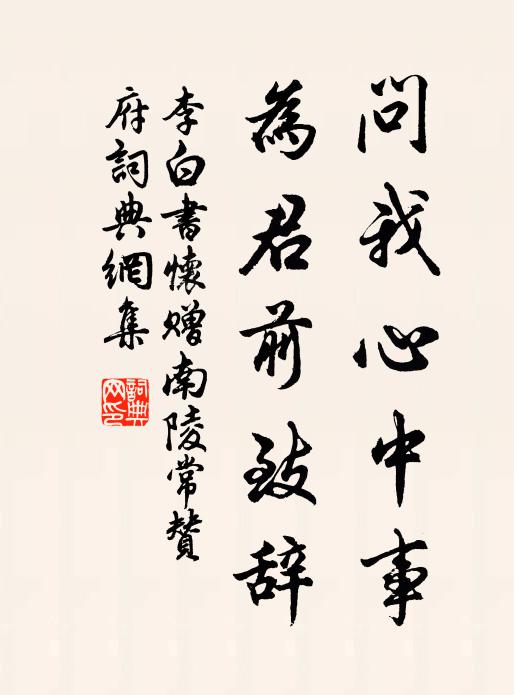 問我心中事
為君前致辞
李白書懷贈南陵常贊
府詞典網集
詞典
网印